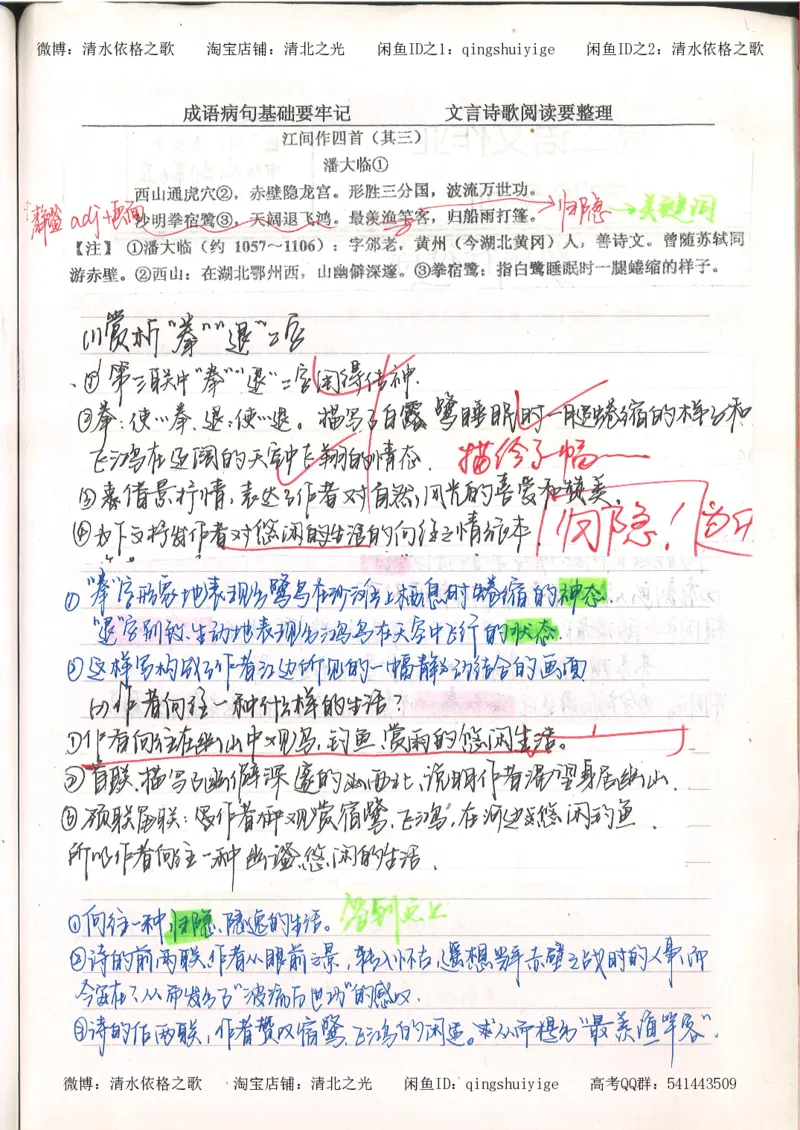 微博：清水依格之歌 淘宝店铺：清北之光 闲鱼ID之1：qingshuiyige 闲鱼ID之2：清水依格之歌
成语病句基础要牢记 文言诗歌阅读要整理
江间作四首（其三）
潘大临①
西山通虎穴②，赤壁隐龙宫。形胜三分国，波流万世功。
沙明拳宿鹭③，天阔退飞鸿。最羡渔竿客，归船雨打篷。
归隐→关键词
adj+画面
【注】 ①潘大临（约 1057～1106）：字邠老，黄州（今湖北黄冈）人，善诗文。曾随苏轼同
游赤壁。②西山：在湖北鄂州西，山幽僻深邃。③拳宿鹭：指白鹭睡眠时一腿蜷缩的样子。
(1)赏析“拳”“退”二字
①第三联中“拳”“退”二字用得传神.
②拳：使…拳.退：使…退。描写了白露鹭睡眠时一腿蜷缩的样子和
飞鸿在辽阔的天空中飞翔的情态.
描绘了一幅——
③寓借景抒情,表达了作者对自然风光的喜爱和赞美.
④为下文抒发作者对悠闲的生活的向往之情做
归隐！
①“拳”字形象地表现出鹭鸟在沙滩上栖息时蜷缩的神态.
“退”字别致.生动地表现出鸿鸟在天空中飞行的状态.
②这样写构成了作者江边所见的一幅静动结合的画面
(2)作者向往一种什么样的生活？
①作者向往在幽山中观鸟,钓鱼,赏雨的悠闲生活。
②首联.描写了幽僻深邃的山西北,说明作者渴望身居幽山.
③颔联尾联：写作者仰观赏宿鹭,飞鸿,在河边悠闲钓鱼.
所以作者向往一种幽谧悠闲的生活.
①向往一种归隐、隐逸的生活。
答到点上
②诗的前两联,作者从眼前之景,转入怀古,遥想当年赤壁之战时的人事,而
今安在?从而发出了“波流万世功”的感叹.
③诗的后两联,作者赞叹宿鹭、飞鸿的闲适。从而想为“最羡渔竿客”.
微博：清水依格之歌 淘宝店铺：清北之光 闲鱼ID：qingshuiyige 高考QQ群：541443509